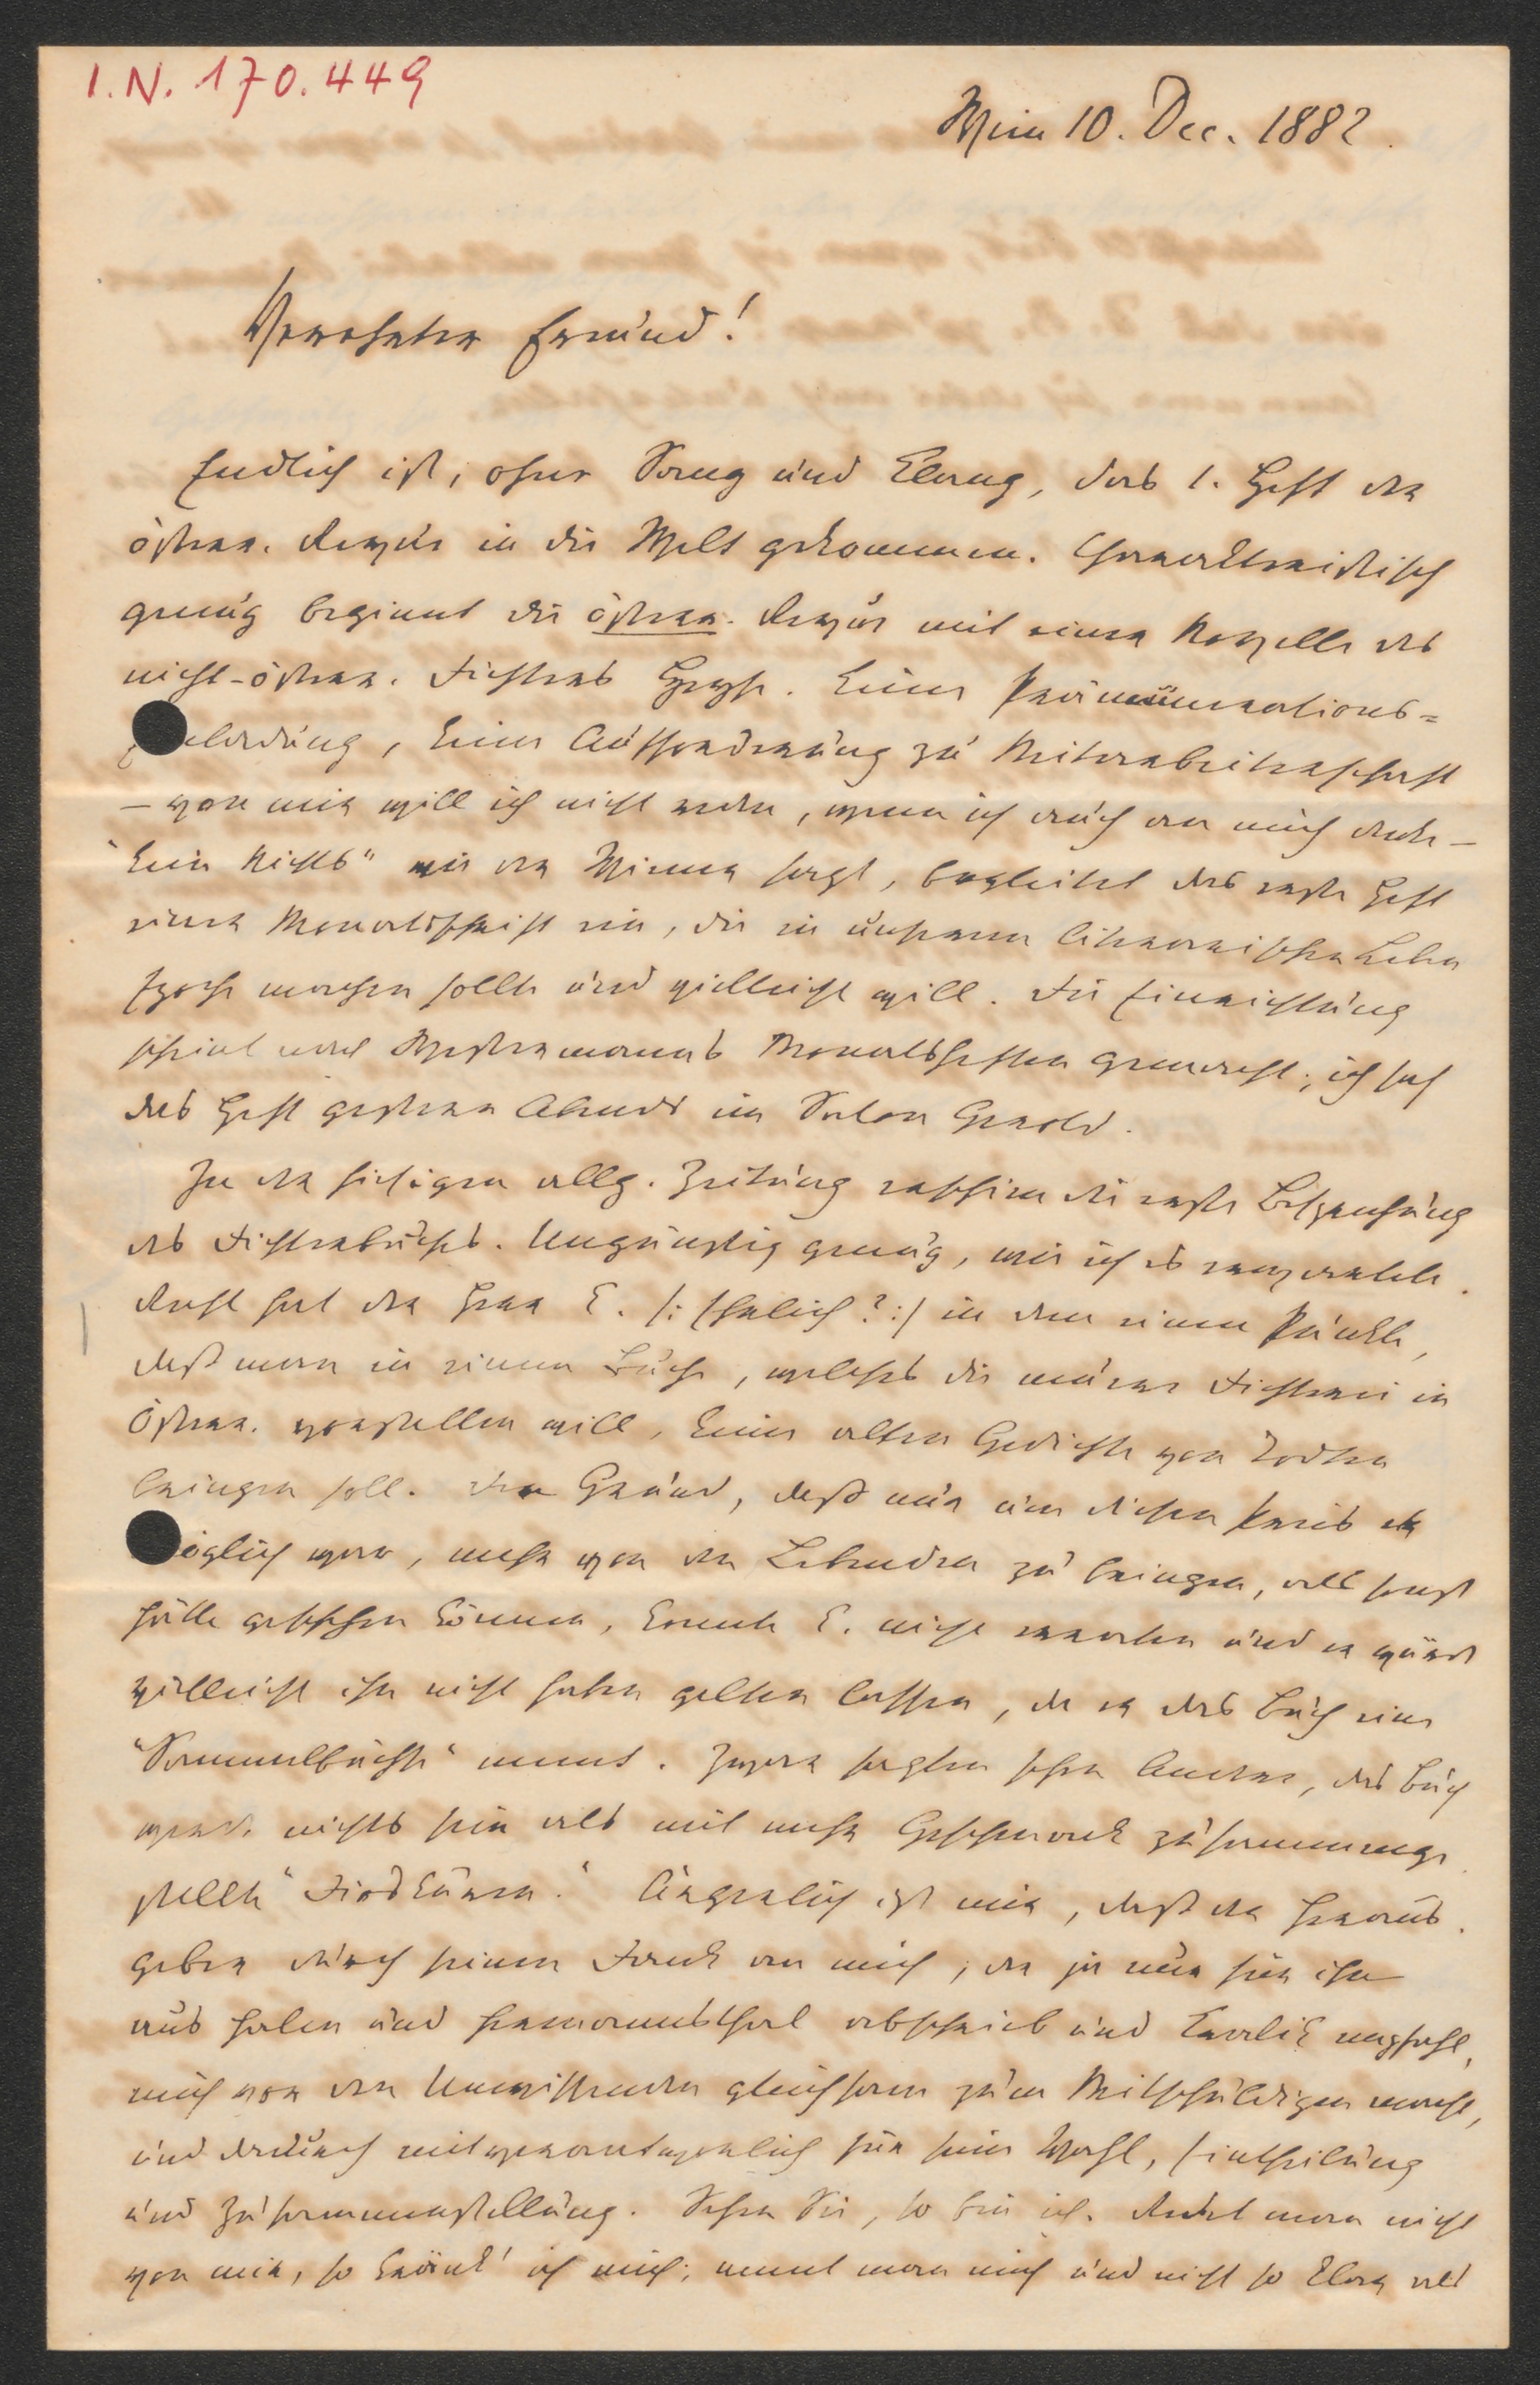 I.N. 170.449
Wien 10. Dec. 1882.
Verehrter Freund!
Endlich ist, ohne Sang und Klang, das 1. Heft der
österr. Revüe in die Welt gekommen. Charakteristisch
genug beginnt die österr. Revüe mit einer Novelle des
nicht-österr. Dichters Heyse. Keine Pränumerations-
ladung, keine Aufforderung zu Mitarbeiterschaft
– von mir will ich nicht reden, wenn ich auch an mich denke –
"kein Nichts" wie der Wiener sagt, begleitet das erste Heft
einer Monatsschrift ein, die in unserem literarischen Leben
Epoche machen sollte und vielleicht will. Die Einrichtung
scheint nach Westermanns Monatsheften gemacht; ich sah
das Heft gestern Abends im Salon Gerold.
In der hiesigen allg. Zeitung erschien die erste Besprechung
des Dichterbuches. Ungünstig genug, wie ich es erwartete.
Recht hat der Herr E. /: Ehrlich? :/ in dem einen Punkte,
daß man in einem Buche, welches die neuere Dichterei in
Österr. vorstellen will, keine alten Gedichte von Todten
bringen soll. Den Grund, daß nur um diesen Preis es
möglich war, mehr von den Lebenden zu bringen, als sonst
hätte geschehen können, konnte E. nicht errathen und er würde
vielleicht ihn nicht haben gelten lassen, da er das Buch eine
"Sammelbüchse" nennt. Zuvor sagten schon Andere, das Buch
werde nichts sein als mit mehr Geschmack zusammenge-
stellte "Dioskuren." Ärgerlich ist mir, daß der Heraus-
geber durch seinen Dank an mich, der ja nur für ihn
aus Halm und Hermannsthal abschrieb und Kaulik empfahl,
mich vor den Unwissenden gleichsam zum Mitschuldigen macht,
und dadurch mitverantwortlich für seine Wahl, Eintheilung
und Zusammenstellung. Sehen Sie, so bin ich. Redet man nicht
von mir, so kränk' ich mich; nennt man mich und nicht so klar als